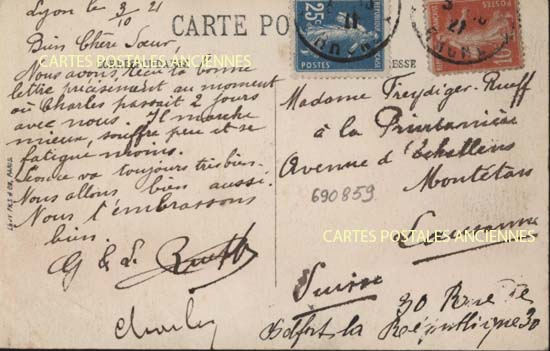 Lyon le 3/10 21
CARTE PO
25c
POSTES
10
Bien Chère Sœur,
CORRESPONDANCE
ESSE
CARTES POSTALES ANCIENNES
Nous avons reçu ta bonne
lettre précisément au moment
où Charles passait 2 jours
avec nous. Il marche
mieux, souffre peu et se
fatigue moins.
va toujours très bien.
Nous allons bien aussi.
Nous t'embrassons
bien.
G & L Rueff
Charles
LEVY FILS & CIE, PARIS
Madame Freydiger-Rueff
à la Printanière
Avenue d'Echallens
Montétan
690859
CARTES POSTALES ANCIENNES
Lausanne
Suisse
30 Rue de
la République 30